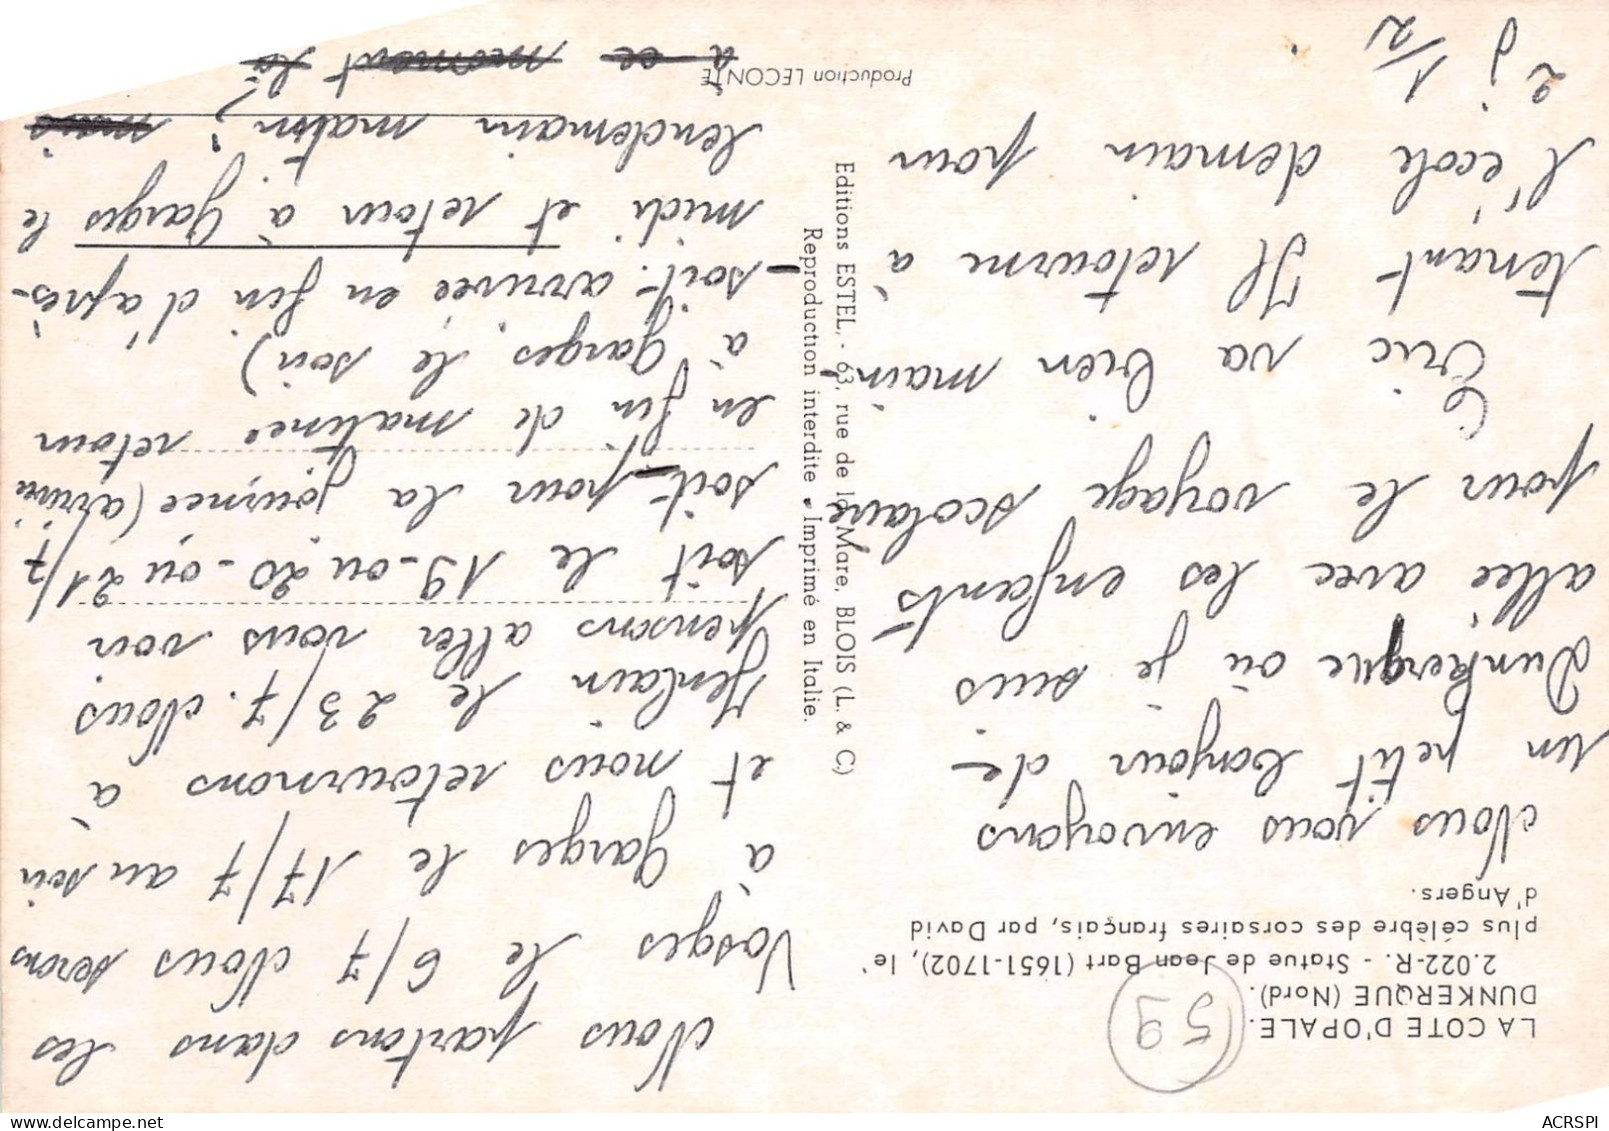 LA COTE D'OPALE.
DUNKERQUE (Nord).
2.022-R. - Statue de Jean Bart (1651-1702), le
plus célèbre des corsaires français, par David
d'Angers.
59
Nous vous envoyons
un petit bonjour de
Dunkerque où je suis
allée avec les enfants
pour le voyage scolaire
Eric va bien main
tenant Il retourne à
l'école demain pour
2 j 1/2
Editions ESTEL, - 63, rue de la Mare, BLOIS (L. & C)
Reproduction interdite • Imprimé en Italie.
Production LECONTE
Nous partons dans les
Vosges le 6/7 Nous serons
à Garges le 17/7 au soir
et nous retournons à
Jenlain le 23/7. Nous
pensons aller vous voir
soit le 19 - ou 20 - ou 21/7
soit pour la journée (arrivée
en fin de matinée retour
à Garges le soir)
- soit arrivée en fin d'après-
midi et retour à Garges le
lendemain matin, mais
à ce moment là
ACRSPI